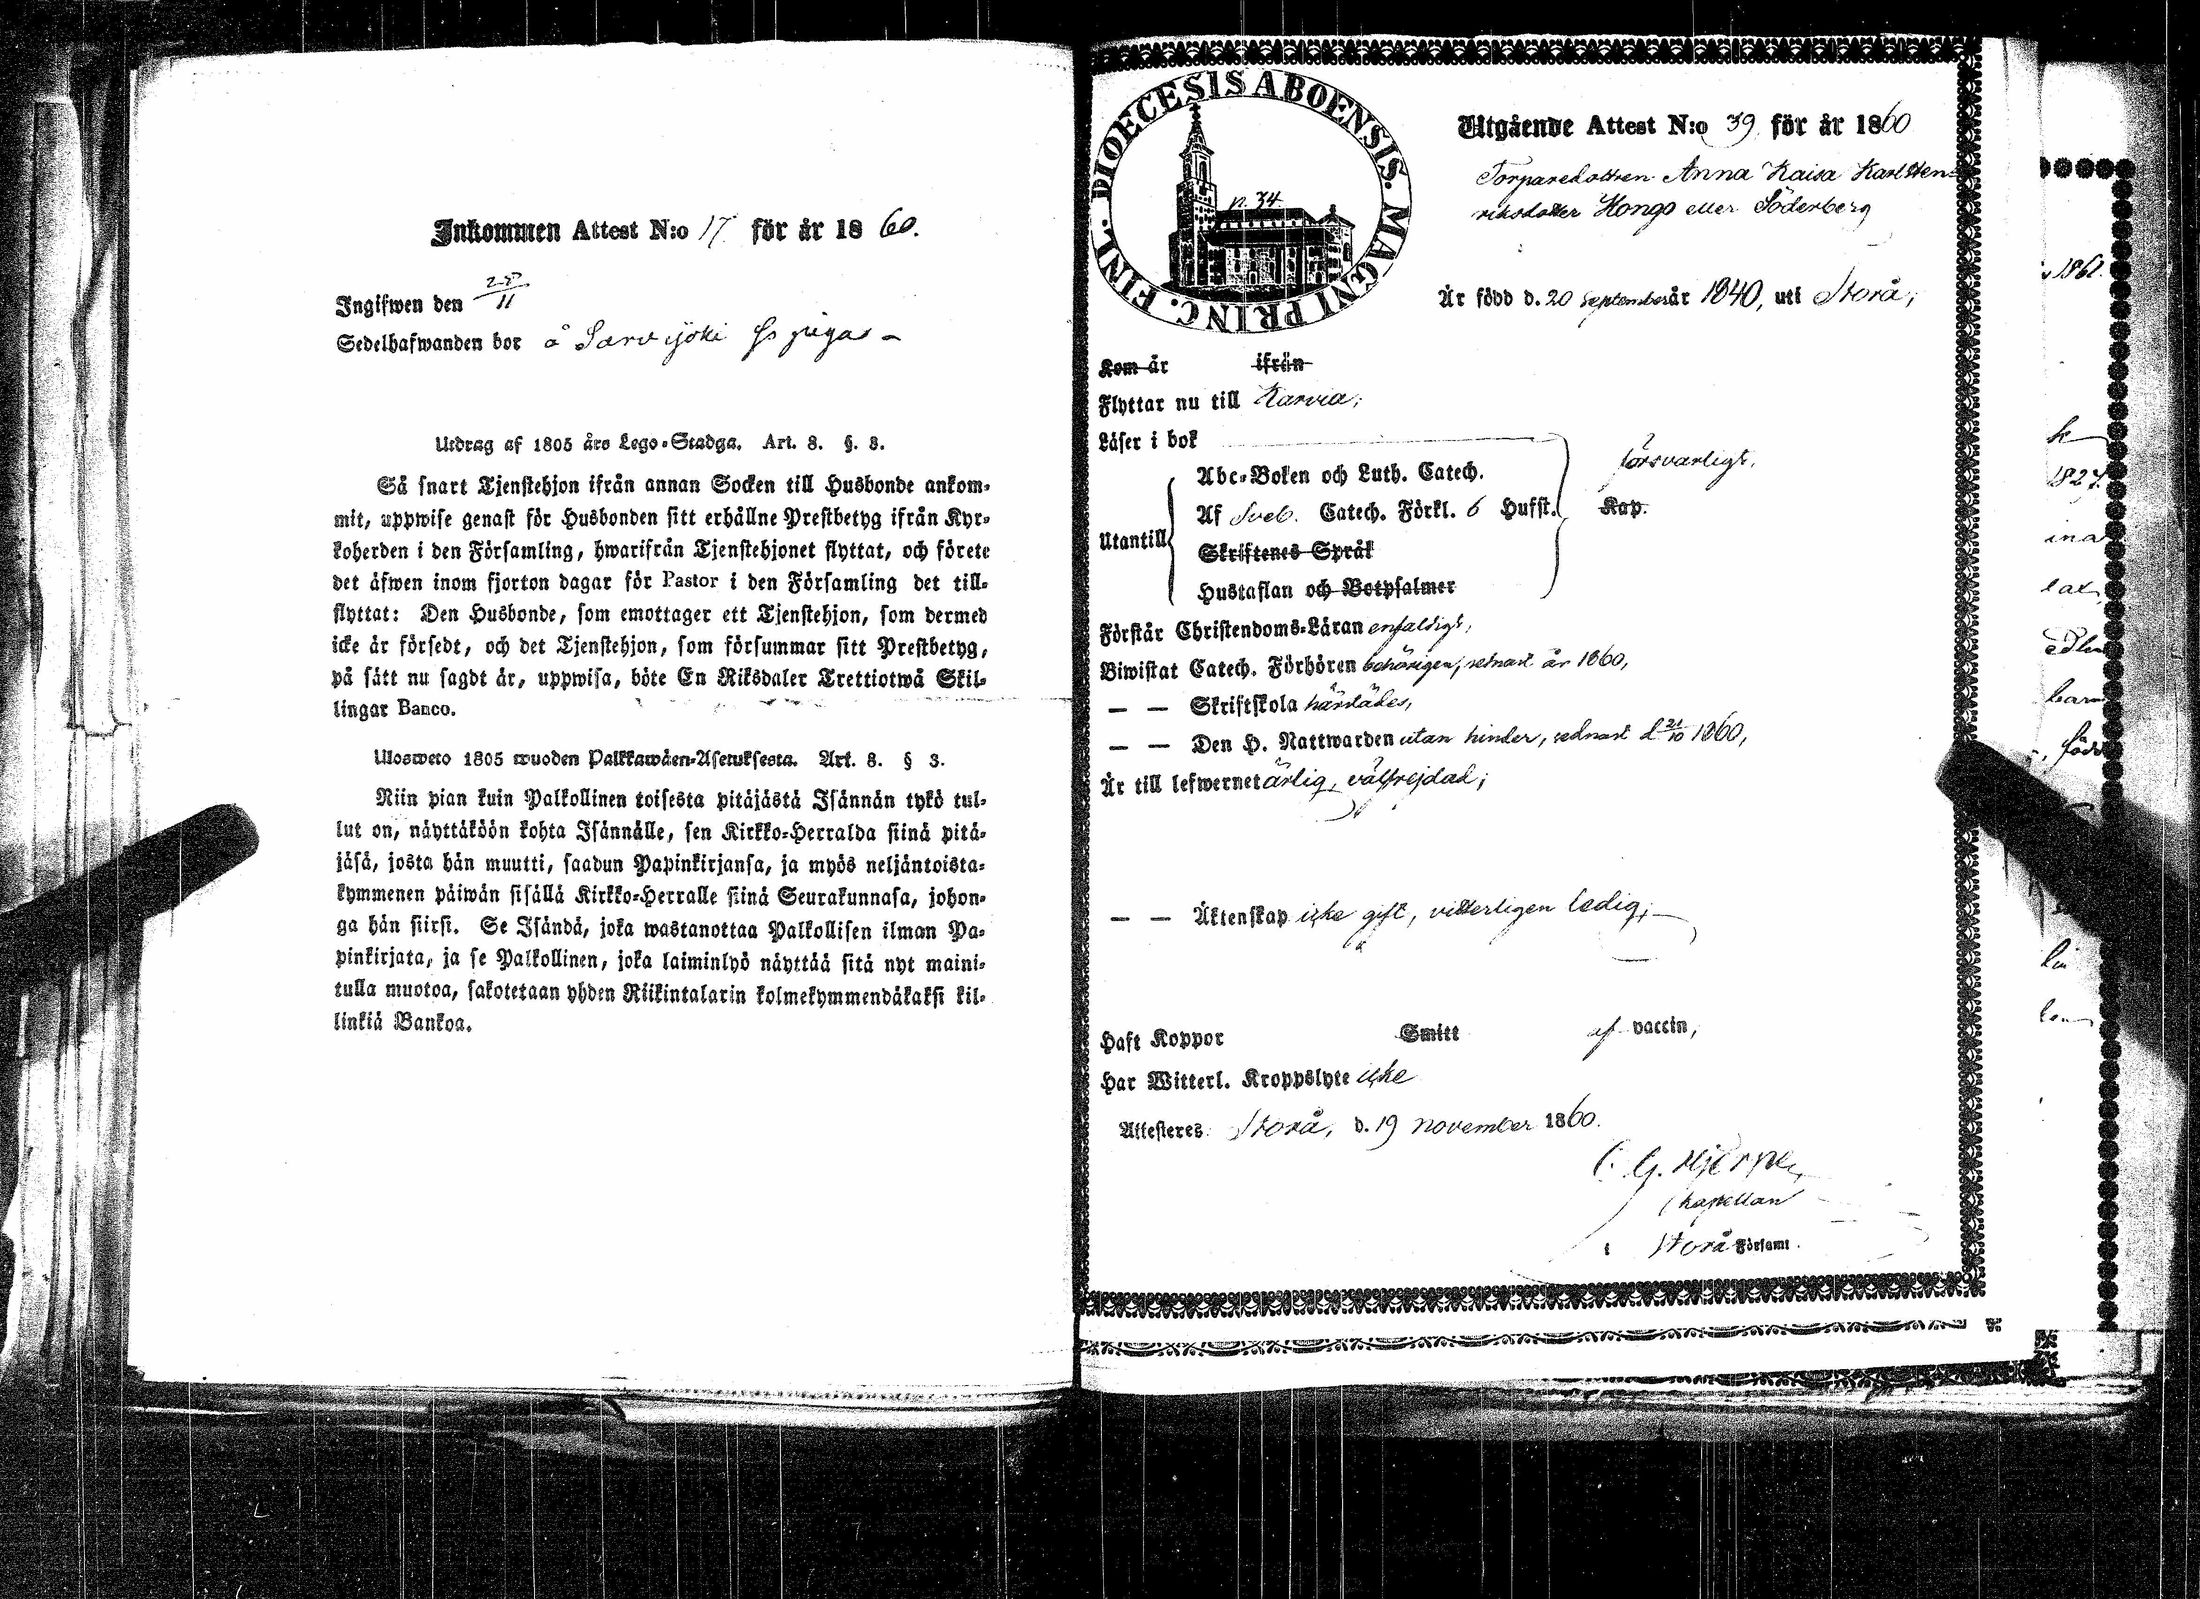 Inkommen Attest N:o 17 för år 1860.
Ingifwen den 25/11
Sedelhafwanden bor å Sarvijoki
Utdrag af 1805 års Lego-Stadga. Art. 8. §. 3.
Så snart Tjenstehjon ifrån annan Socken till Husbonde ankom-
mit, uppwise genast för Husbonden sitt erhållne Prestbetyg ifrån Kyr-
koherden i den Församling, hwarifrån Tjenstehjonet flyttat, och förete
det äfwen inom fjorton dagar för Pastor i den Församling det till-
flyttat: Den Husbonde, som emottager ett Tjenstehjon, som dermed
icke är försedt, och det Tjenstehjon, som försummar sitt Prestbetyg,
på sätt nu sagdt är, uppwisa, böte En Riksdaler Trettiotwå Skil-
lingar Banco.
Ulosweto 1805 wuoden Palkkawäen-Asetuksesta. Art. 8. § 3.
Niin pian kuin Palkollinen toisesta pitäjästä Isännän tykö tul-
lut on, näyttäköön kohta Isännälle, sen Kirkko-Herralda siinä pitä-
jäsä, josta hän muutti, saadun Papinkirjansa, ja myös neljäntoista-
kymmenen päiwän sisällä Kirkko-Herralle siinä Seurakunnasa, johon-
ga hän siirsi. Se Isändä, joka wastanottaa Palkollisen ilman Pa-
pinkirjata, ja se Palkollinen, joka laiminlyö näyttää sitä nyt maini-
tulla muotoa, sakotetaan yhden Riikintalarin kolmekymmendäkaksi kil-
linkiä Bankoa.
FINL. DIOECESIS ABOENSIS. MAGNI PRINC.
p. 34
Utgående Attest N:o 39 för år 1860
Torparedottren Anna Kaisa Karl Hen-
riksdotter Hongo eller Söderberg
Är född d. 20 September år 1840, uti Storå;
Kom år ifrån
Flyttar nu till Karvia;
Läser i bok
försvarligt.
Utantill
Abc-Boken och Luth. Catech.
Af Sveb. Catech. Förkl. 6 Hufst. Kap.
Skriftenes Språk
Hustaflan och Botpsalmer
Förstår Christendoms-Läran enfaldigt;
Biwistat Catech. Förhören behörigen, sednast år 1860,
— — Skriftskola härstädes,
— — Den H. Nattwarden utan hinder, sednast d 21/10 1860,
Är till lefwernet ärlig, välfrejdad;
— — Äktenskap icke gift, vitterligen ledig;
Haft Koppor Smitt af vaccin,
Har Witterl. Kroppslyte icke
Attesteres Storå, d. 19 november 1860.
C. G. Hjerpe,
Kapellan
i Storå Församl.
1861.
1827.
ina